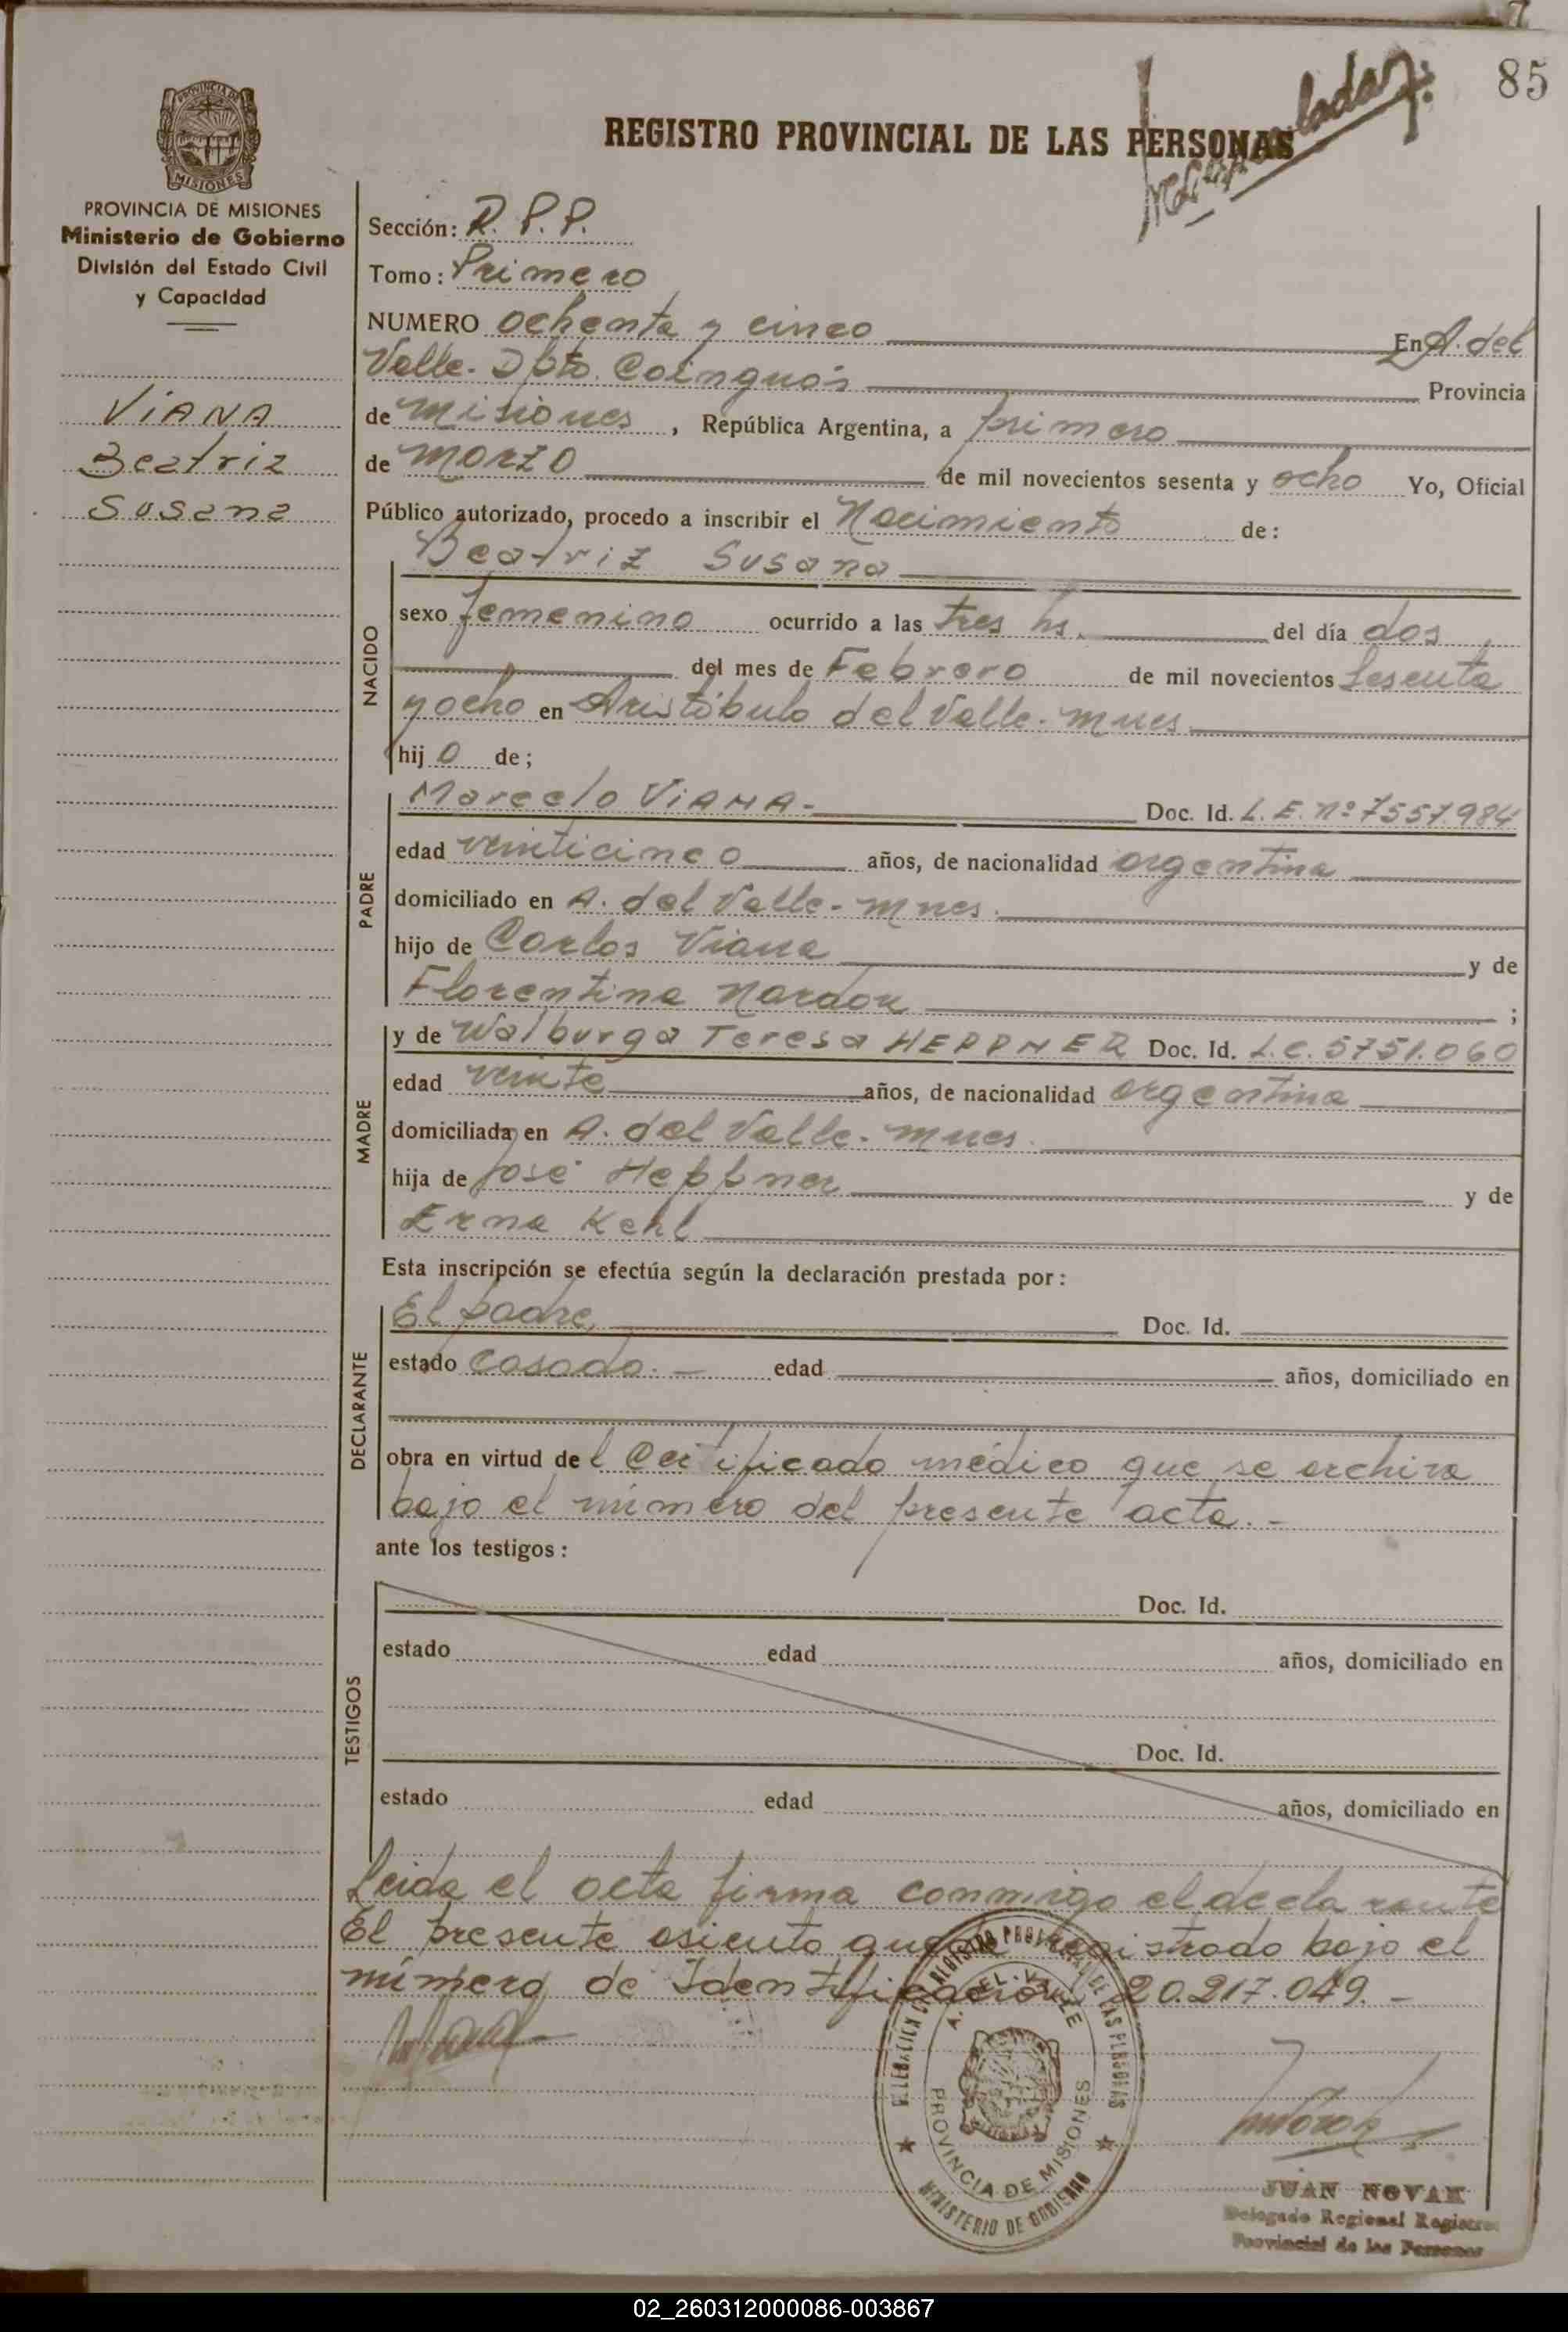 85
REGISTRO PROVINCIAL DE LAS PERSONAS
PROVINCIA DE MISIONES
Ministerio de Gobierno
División del Estado Civil
y Capacidad
VIANA
Beatriz
Susana
Sección: R. P. P.
Tomo: Primero
NUMERO ochenta y cinco En A. del
Valle. Dpto. Cainguás Provincia
de Misiones, República Argentina, a primero
de Marzo de mil novecientos sesenta y ocho Yo, Oficial
Público autorizado, procedo a inscribir el Nacimiento de:
Beatriz Susana
NACIDO
sexo femenino ocurrido a las tres hs. del día dos
del mes de Febrero de mil novecientos sesenta
y ocho en Aristóbulo del Valle. Mnes.
hij o de;
Marcelo VIANA.- Doc. Id. L. E. nº 7557.984
PADRE
edad veinticinco años, de nacionalidad argentina
domiciliado en A. del Valle - Mnes.
hijo de Carlos Viana y de
Florentina ;
MADRE
y de Walburga Teresa HEPPNER Doc. Id. L.C. 5751.060
edad veinte años, de nacionalidad argentina
domiciliada en A. del Valle. Mnes.
hija de José Heppner y de
Erna Kehl
Esta inscripción se efectúa según la declaración prestada por:
DECLARANTE
El padre Doc. Id.
estado casado.- edad años, domiciliado en
obra en virtud del Certificado médico que se archiva
bajo el número del presente acta.-
ante los testigos:
TESTIGOS
Doc. Id.
estado edad años, domiciliado en
Doc. Id.
estado edad años, domiciliado en
Leida el acta firma conmigo el declarante
El presente asiento queda registrado bajo el
número de Identificación 20.217.049.-
REGISTRO PROVINCIAL DE LAS PERSONAS
A. DEL VALLE
PROVINCIA DE MISIONES
MINISTERIO DE GOBIERNO
JUAN NOVAK
Delegado Regional Registro
Provincial de las Personas
02_260312000086-003867